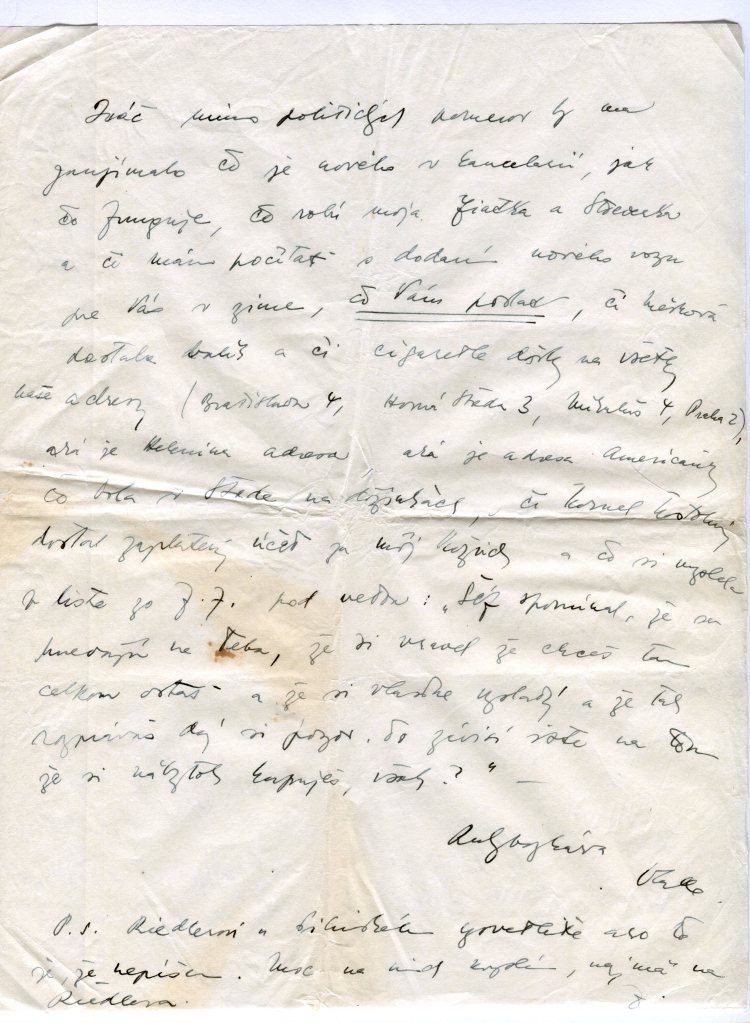 mimo politických pomerov by ma
zaujímalo čo je nového v kancelarii, jak
čo funguje, čo robí moja žiačka a
a či mám počítať s dodaním nového vozu
pre Vás v zime, čo Vám poslať, či
dostala balík a či cigaretle došly na všetky
naše adresy (Bratislava 4, Horná Streda 3, Mikuláš 4, Praha 2),
aká je Helenina adresa aká je adresa Američanky
čo bola v Strede na dožinkách, či Kornel
dostal zaplatený účet za môj kožuch a čo si myslela
v liste zo J.J. pod vetou: „Šéf spomínal, že sa
na Teba, že si vravel že chceš tam
celkom ostať a že si vlastne a že tak
rozprávaš daj si pozor. To súvisí iste na tom
že si nábytok kupuješ, však?" —
Ruky bozkáva
P.S. Riedlerovi a vysvetlite ako to
je, že nepíšem. Moc na nich myslím, najmä na
Riedlera.